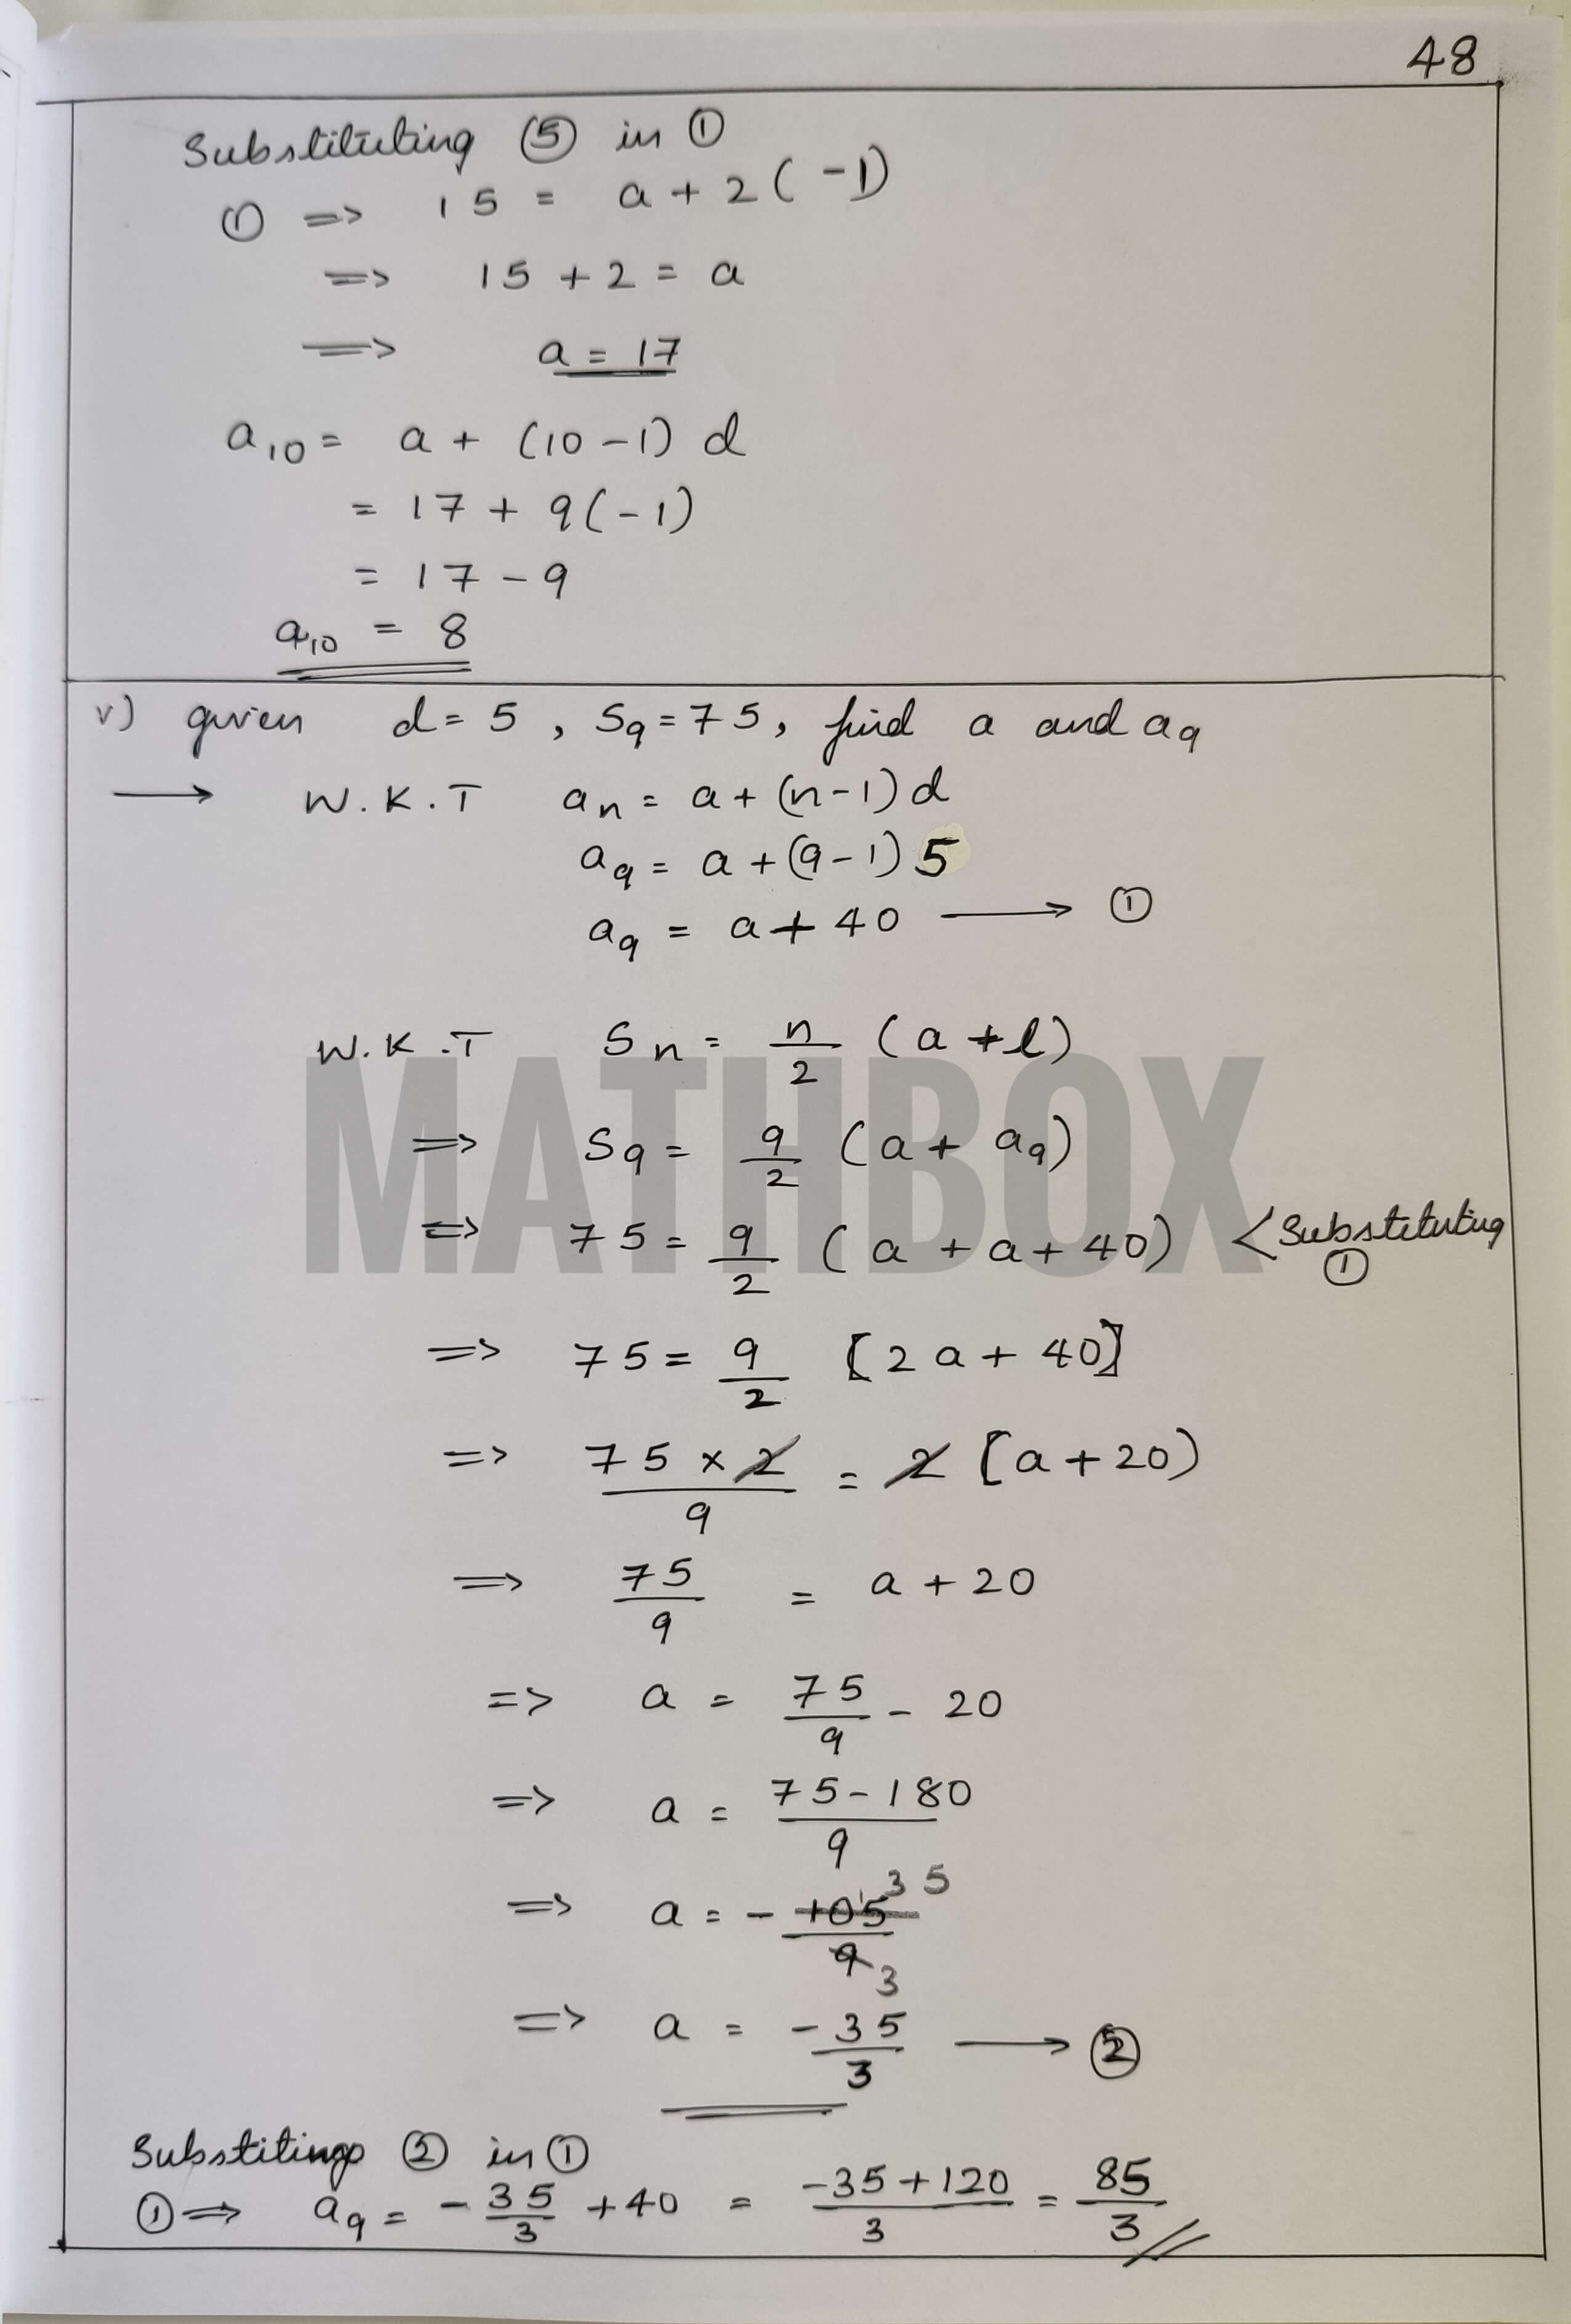 48
Substituting ⑤ in ①
① => 15 = a + 2 ( -1)
=> 15 + 2 = a
=> a = 17
a₁₀ = a + (10 - 1) d
= 17 + 9 ( - 1)
= 17 - 9
a₁₀ = 8
v) given d = 5 , S₉ = 75, find a and a₉
→ W.K.T aₙ = a + (n - 1) d
a₉ = a + (9 - 1) 5
a₉ = a + 40 → ①
W.K.T Sₙ = n/2 (a + l)
=> S₉ = 9/2 (a + a₉)
=> 75 = 9/2 (a + a + 40) < Substituting ①
=> 75 = 9/2 [2a + 40]
=> 75 × 2/9 = 2 [a + 20)
=> 75/9 = a + 20
=> a = 75/9 - 20
=> a = 75 - 180/9
=> a = - 105/9 35 3
=> a = -35/3 → ②
Substitings ② in ①
① => a₉ = - 35/3 + 40 = -35 + 120/3 = 85/3 //
MATHBOX